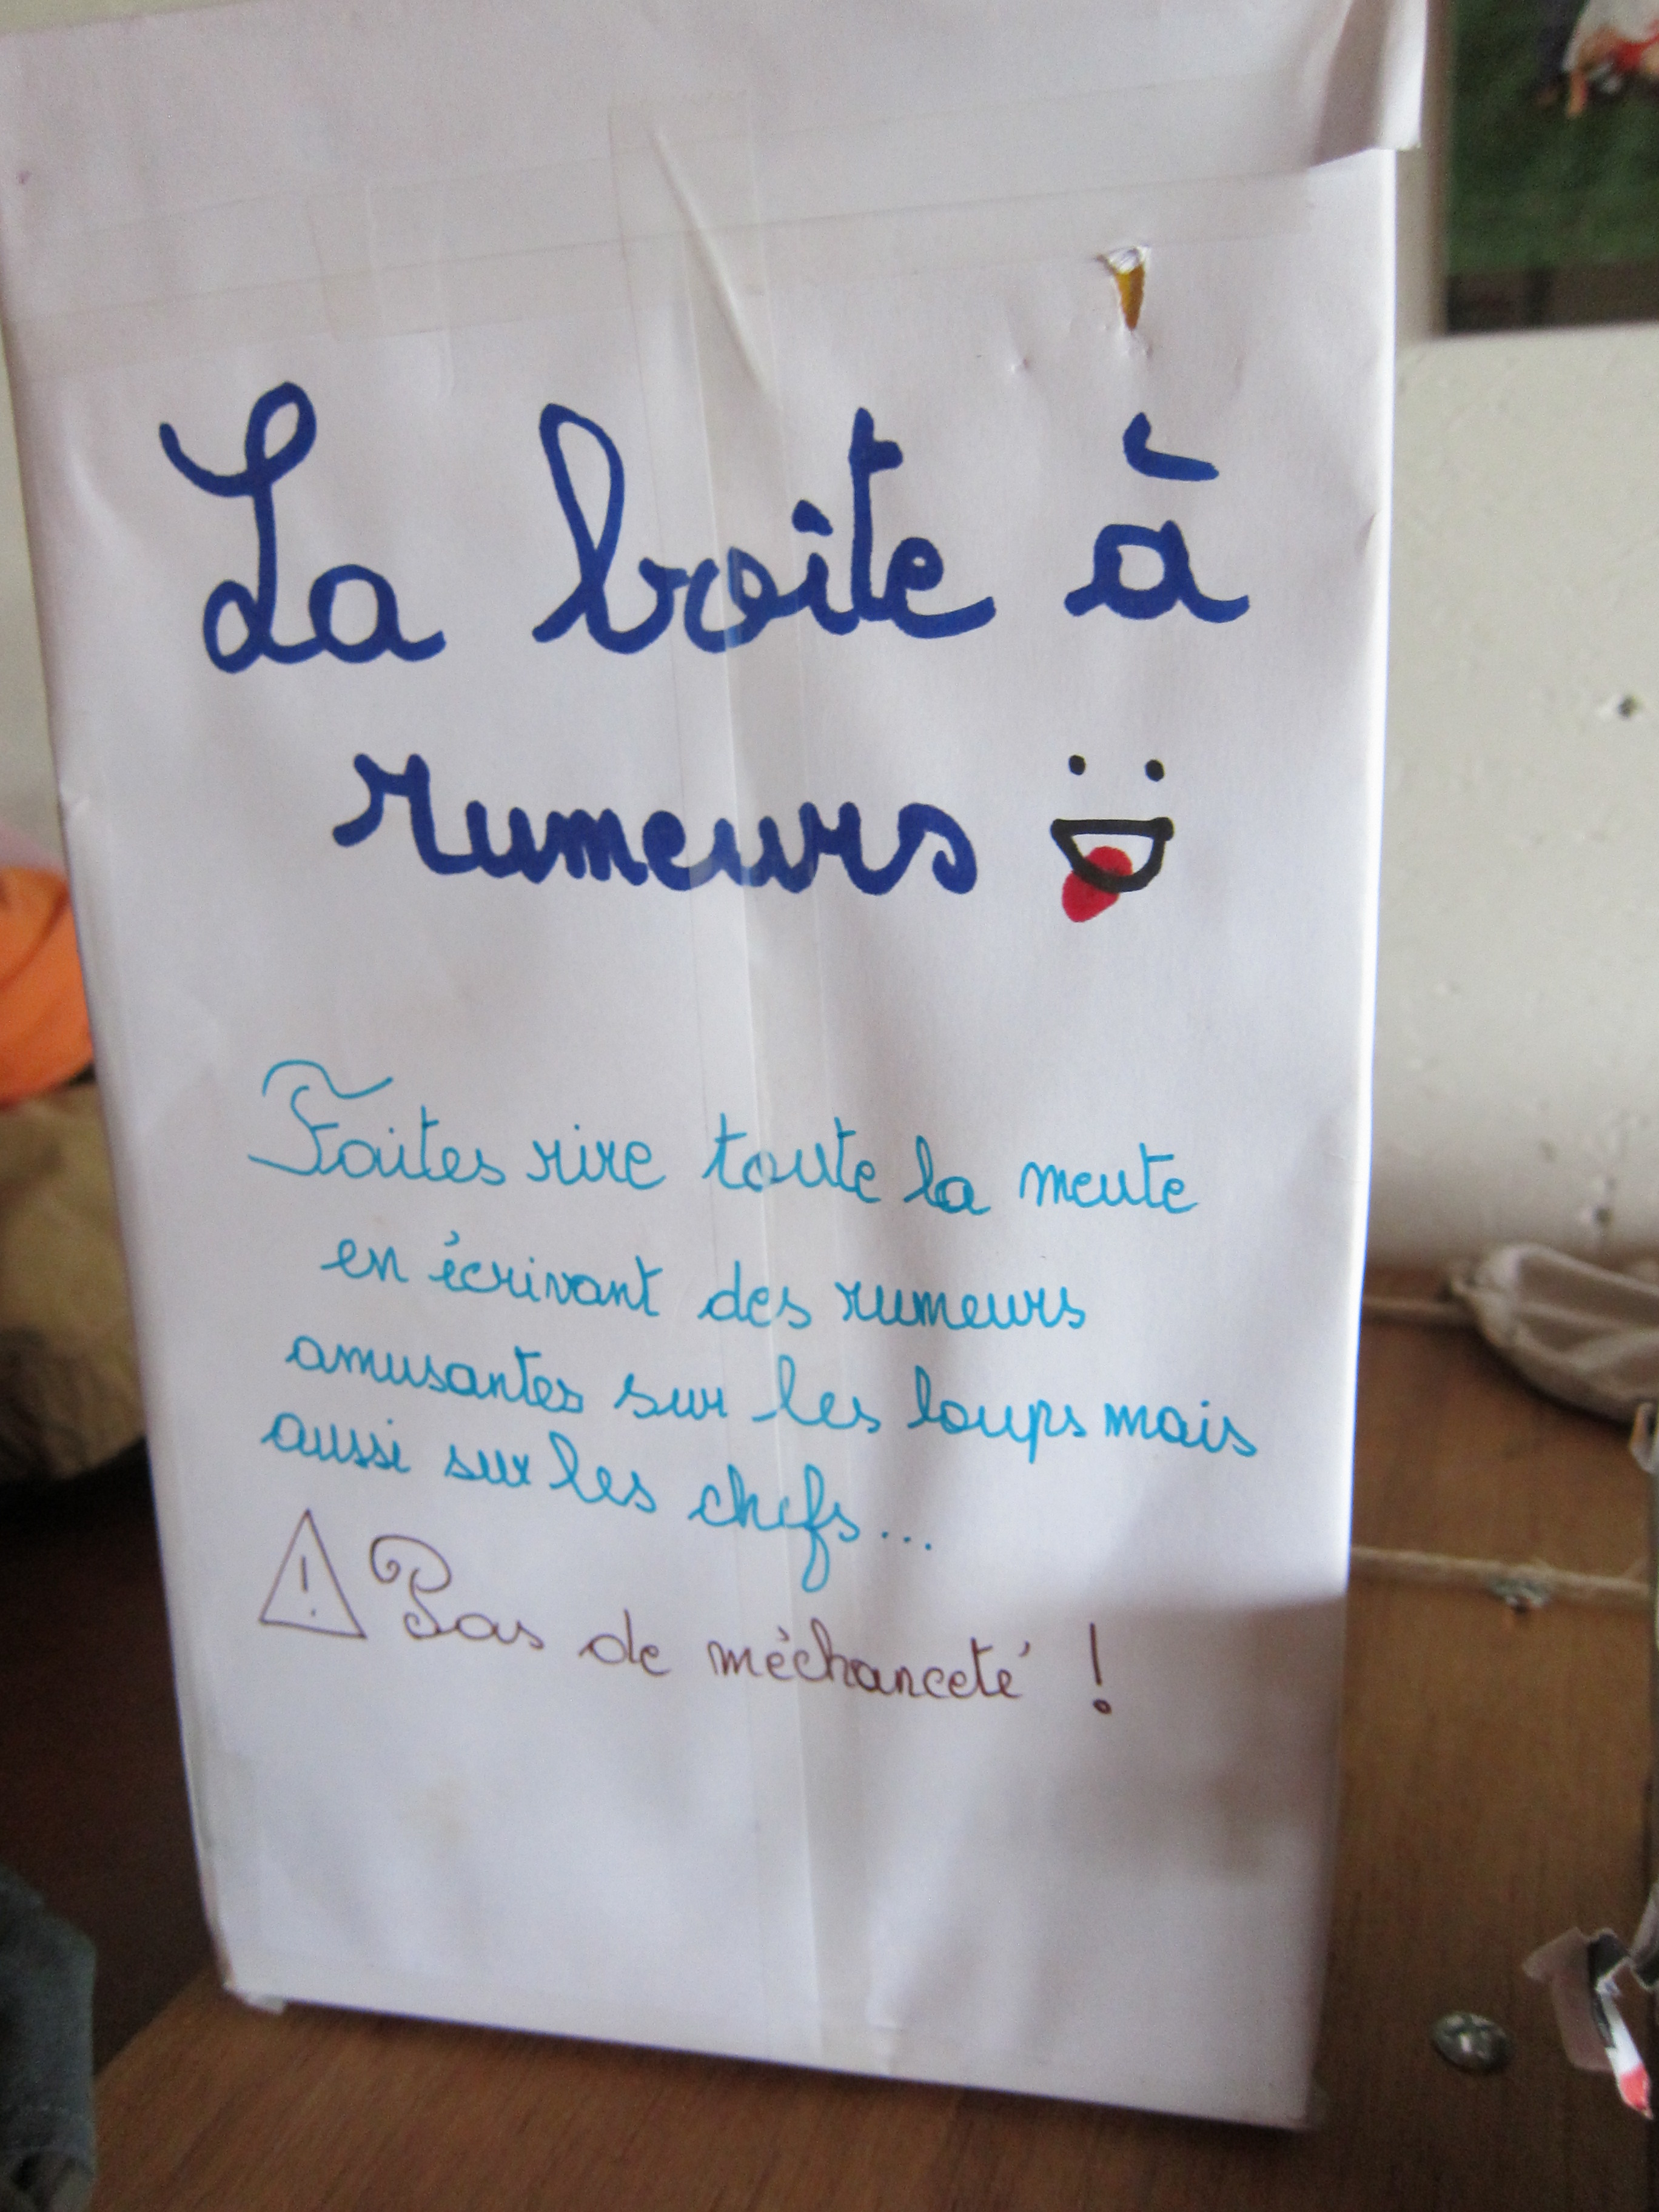 La boite à
rumeurs
Faites rire toute la meute
en écrivant des rumeurs
amusantes sur les loups mais
aussi sur les chefs...
! Pas de méchanceté !